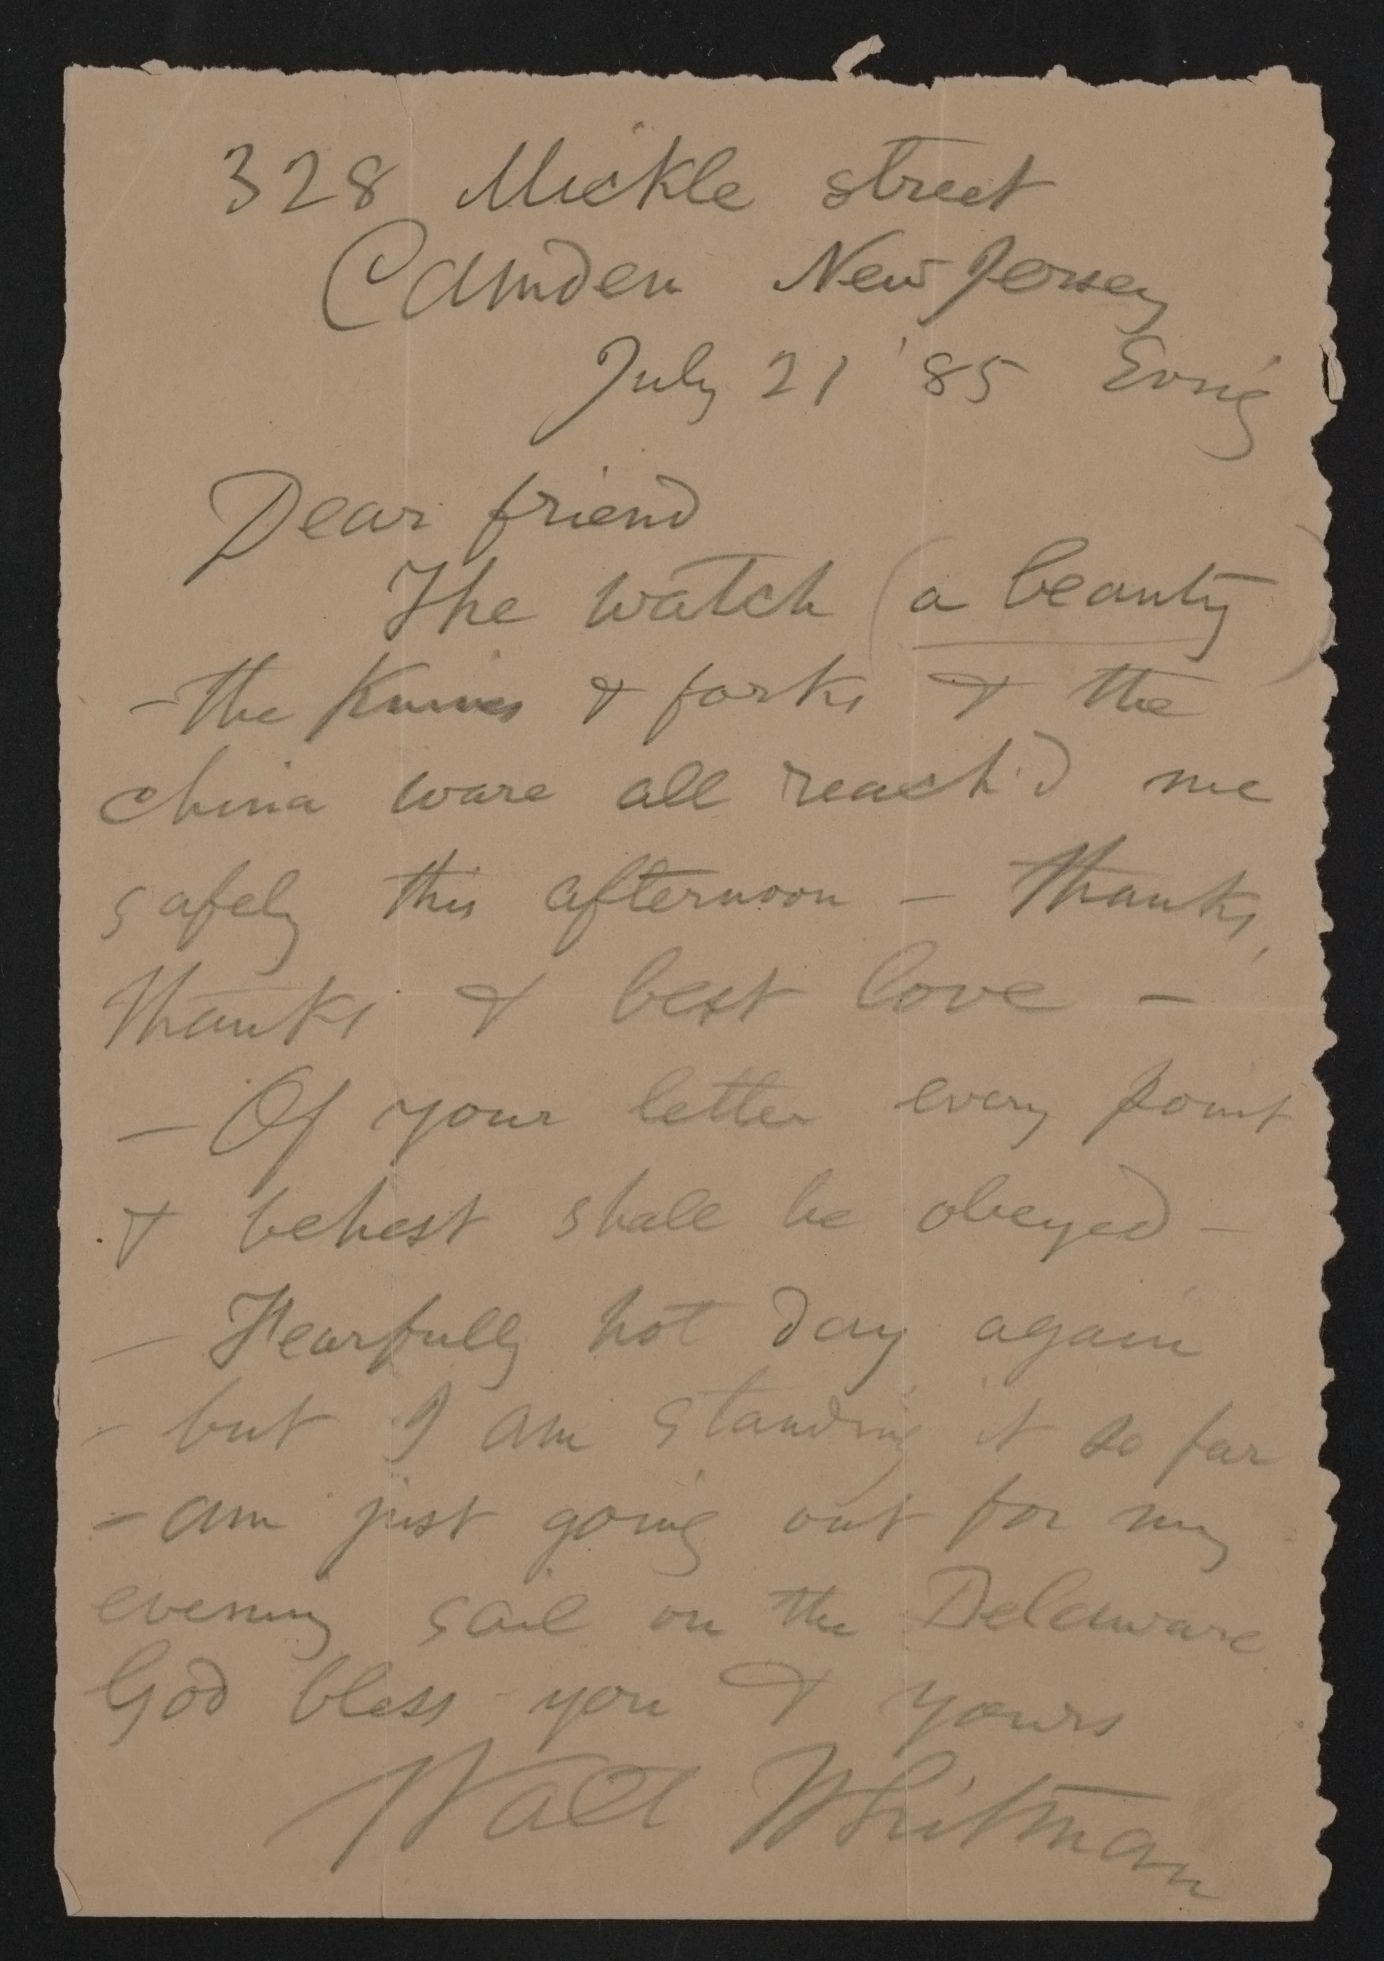 328 Mickle street
Camden New Jersey
July 21 '85 Evn'g
Dear friend
The watch (a beauty)
- the knives & forks & the
china ware all reach'd me
safely this afternoon - thanks,
thanks & best love -
- Of your letter every point
& behest shall be obeyed -
- Fearfully hot day again
- but I am standing it so far
- am just going out for my
evening sail on the Delaware
God bless you & yours
Walt Whitman